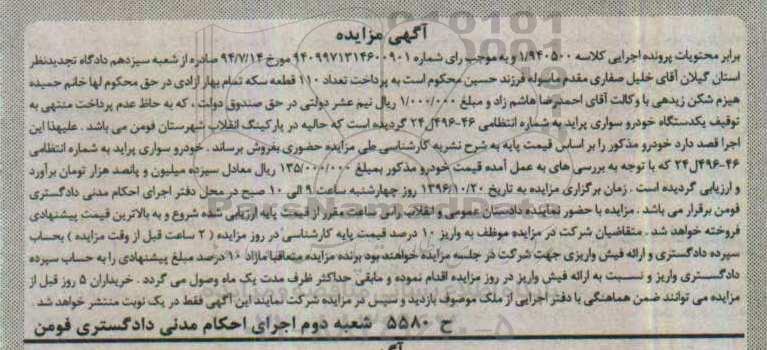 آگهی مزایده
برابر محتویات پرونده اجرایی کلاسه ۱/۹۴۰۵۰۰ و به موجب رای شماره ۹۴۰۹۹۷۱۳۱۴۶۰۰۹۰۱ مورخ ۹۴/۷/۱۴ صادره از شعبه سیزدهم دادگاه تجدیدنظر
استان گیلان آقای خلیل صفاری مقدم ماسوله فرزند حسین محکوم است به پرداخت تعداد ۱۱۰ قطعه سکه تمام بهار آزادی در حق محکوم لها خانم حمیده
هیزم شکن زیدهی با وکالت آقای احمدرضا هاشم زاد و مبلغ ۱/۰۰۰/۰۰۰ ریال نیم عشر دولتی در حق صندوق دولت ، که به حاظ عدم پرداخت منتهی به
توقیف یکدستگاه خودرو سواری پراید به شماره انتظامی ۴۶-۴۹۶ل۲۴ گردیده است که حالیه در پارکینگ انقلاب شهرستان فومن می باشد . علیهذا این
اجرا قصد دارد خودرو مذکور را بر اساس قیمت پایه به شرح نشریه کارشناسی طی مزایده حضوری بفروش برساند . خودرو سواری پراید به شماره انتظامی
۴۶-۴۹۶ل۲۴ که با توجه به بررسی های به عمل آمده قیمت خودرو مذکور بمبلغ ۱۳۵/۰۰۰/۰۰۰ ریال معادل سیزده میلیون و پانصد هزار تومان برآورد
و ارزیابی گردیده است . زمان برگزاری مزایده به تاریخ ۱۳۹۶/۱۰/۲۰ روز چهارشنبه ساعت ۹ الی ۱۰ صبح در محل دفتر اجرای احکام مدنی دادگستری
فومن برقرار می باشد . مزایده با حضور نماینده دادستان عمومی و انقلاب راس ساعت مقرر از قیمت پایه ارزیابی شده شروع و به بالاترین قیمت پیشنهادی
فروخته خواهد شد . متقاضیان شرکت در مزایده موظف به واریز ۱۰ درصد قیمت پایه کارشناسی در روز مزایده ( ۲ ساعت قبل از وقت مزایده ) بحساب
سپرده دادگستری و ارائه فیش واریزی جهت شرکت در جلسه مزایده خواهند بود برنده مزایده متعاقبا مازاد ۱۰ درصد مبلغ پیشنهادی را به حساب سپرده
دادگستری واریز و نسبت به ارائه فیش واریز در روز مزایده اقدام نموده و مابقی حداکثر ظرف مدت یک ماه وصول می گردد . خریداران ۵ روز قبل از
مزایده می توانند ضمن هماهنگی با دفتر اجرایی از ملک موصوف بازدید و سپس در مزایده شرکت نمایند این آگهی فقط در یک نوبت منتشر خواهد شد .
ح ۵۵۸۰ شعبه دوم اجرای احکام مدنی دادگستری فومن
ParsNamadData